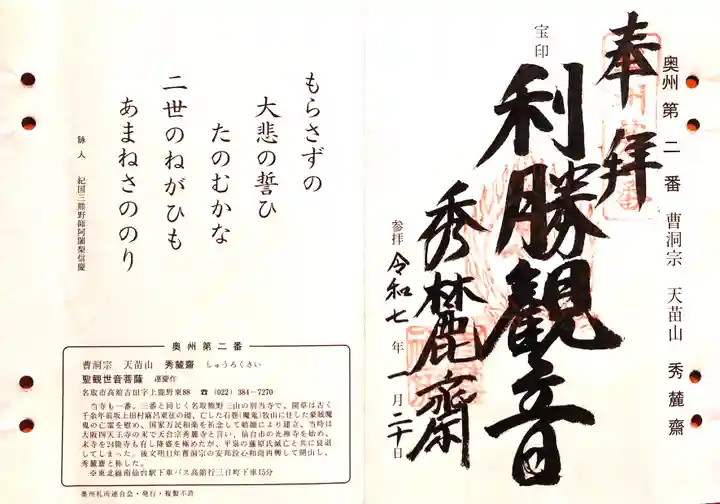 奥州第二番 曹洞宗 天苗山 秀麓齋
奉拝
宝印
利勝観音
秀麓齋
参拝 令和七年一月二十日
もらさずの
大悲の誓ひ
たのむかな
二世のねがひも
あまねさののり
詠人 紀国三熊野師阿闍梨信慶
奥州第二番
曹洞宗 天苗山 秀麓齋 しゅうろくさい
聖観世音菩薩 運慶作
名取市高舘吉田字上鹿野東88 ☎ (022) 384-7270
当寺も一番、三番と同じく名取熊野三山の別当寺で、開草は古く
千余年前坂上田村麻呂東征の砌、亡した石巻(魔鬼)牧山に住した豪賊魔
鬼の亡霊を慰め、国家万民和楽を祈念して勅願により建立、当時は
大阪四天王寺の末で天台宗秀麓寺と言い、仙台市の光禅寺を始め、
末寺を24箇寺も有し隆盛を極めたが、平泉の藤原氏滅亡と共に衰退
してしまった。後文明11年曹洞宗の安邦設心和尚再興して開山し、
秀麓齋と称した。
※東北線南仙台駅下車バス高舘行三日町下車15分
奥州札所連合会・発行・複製不許